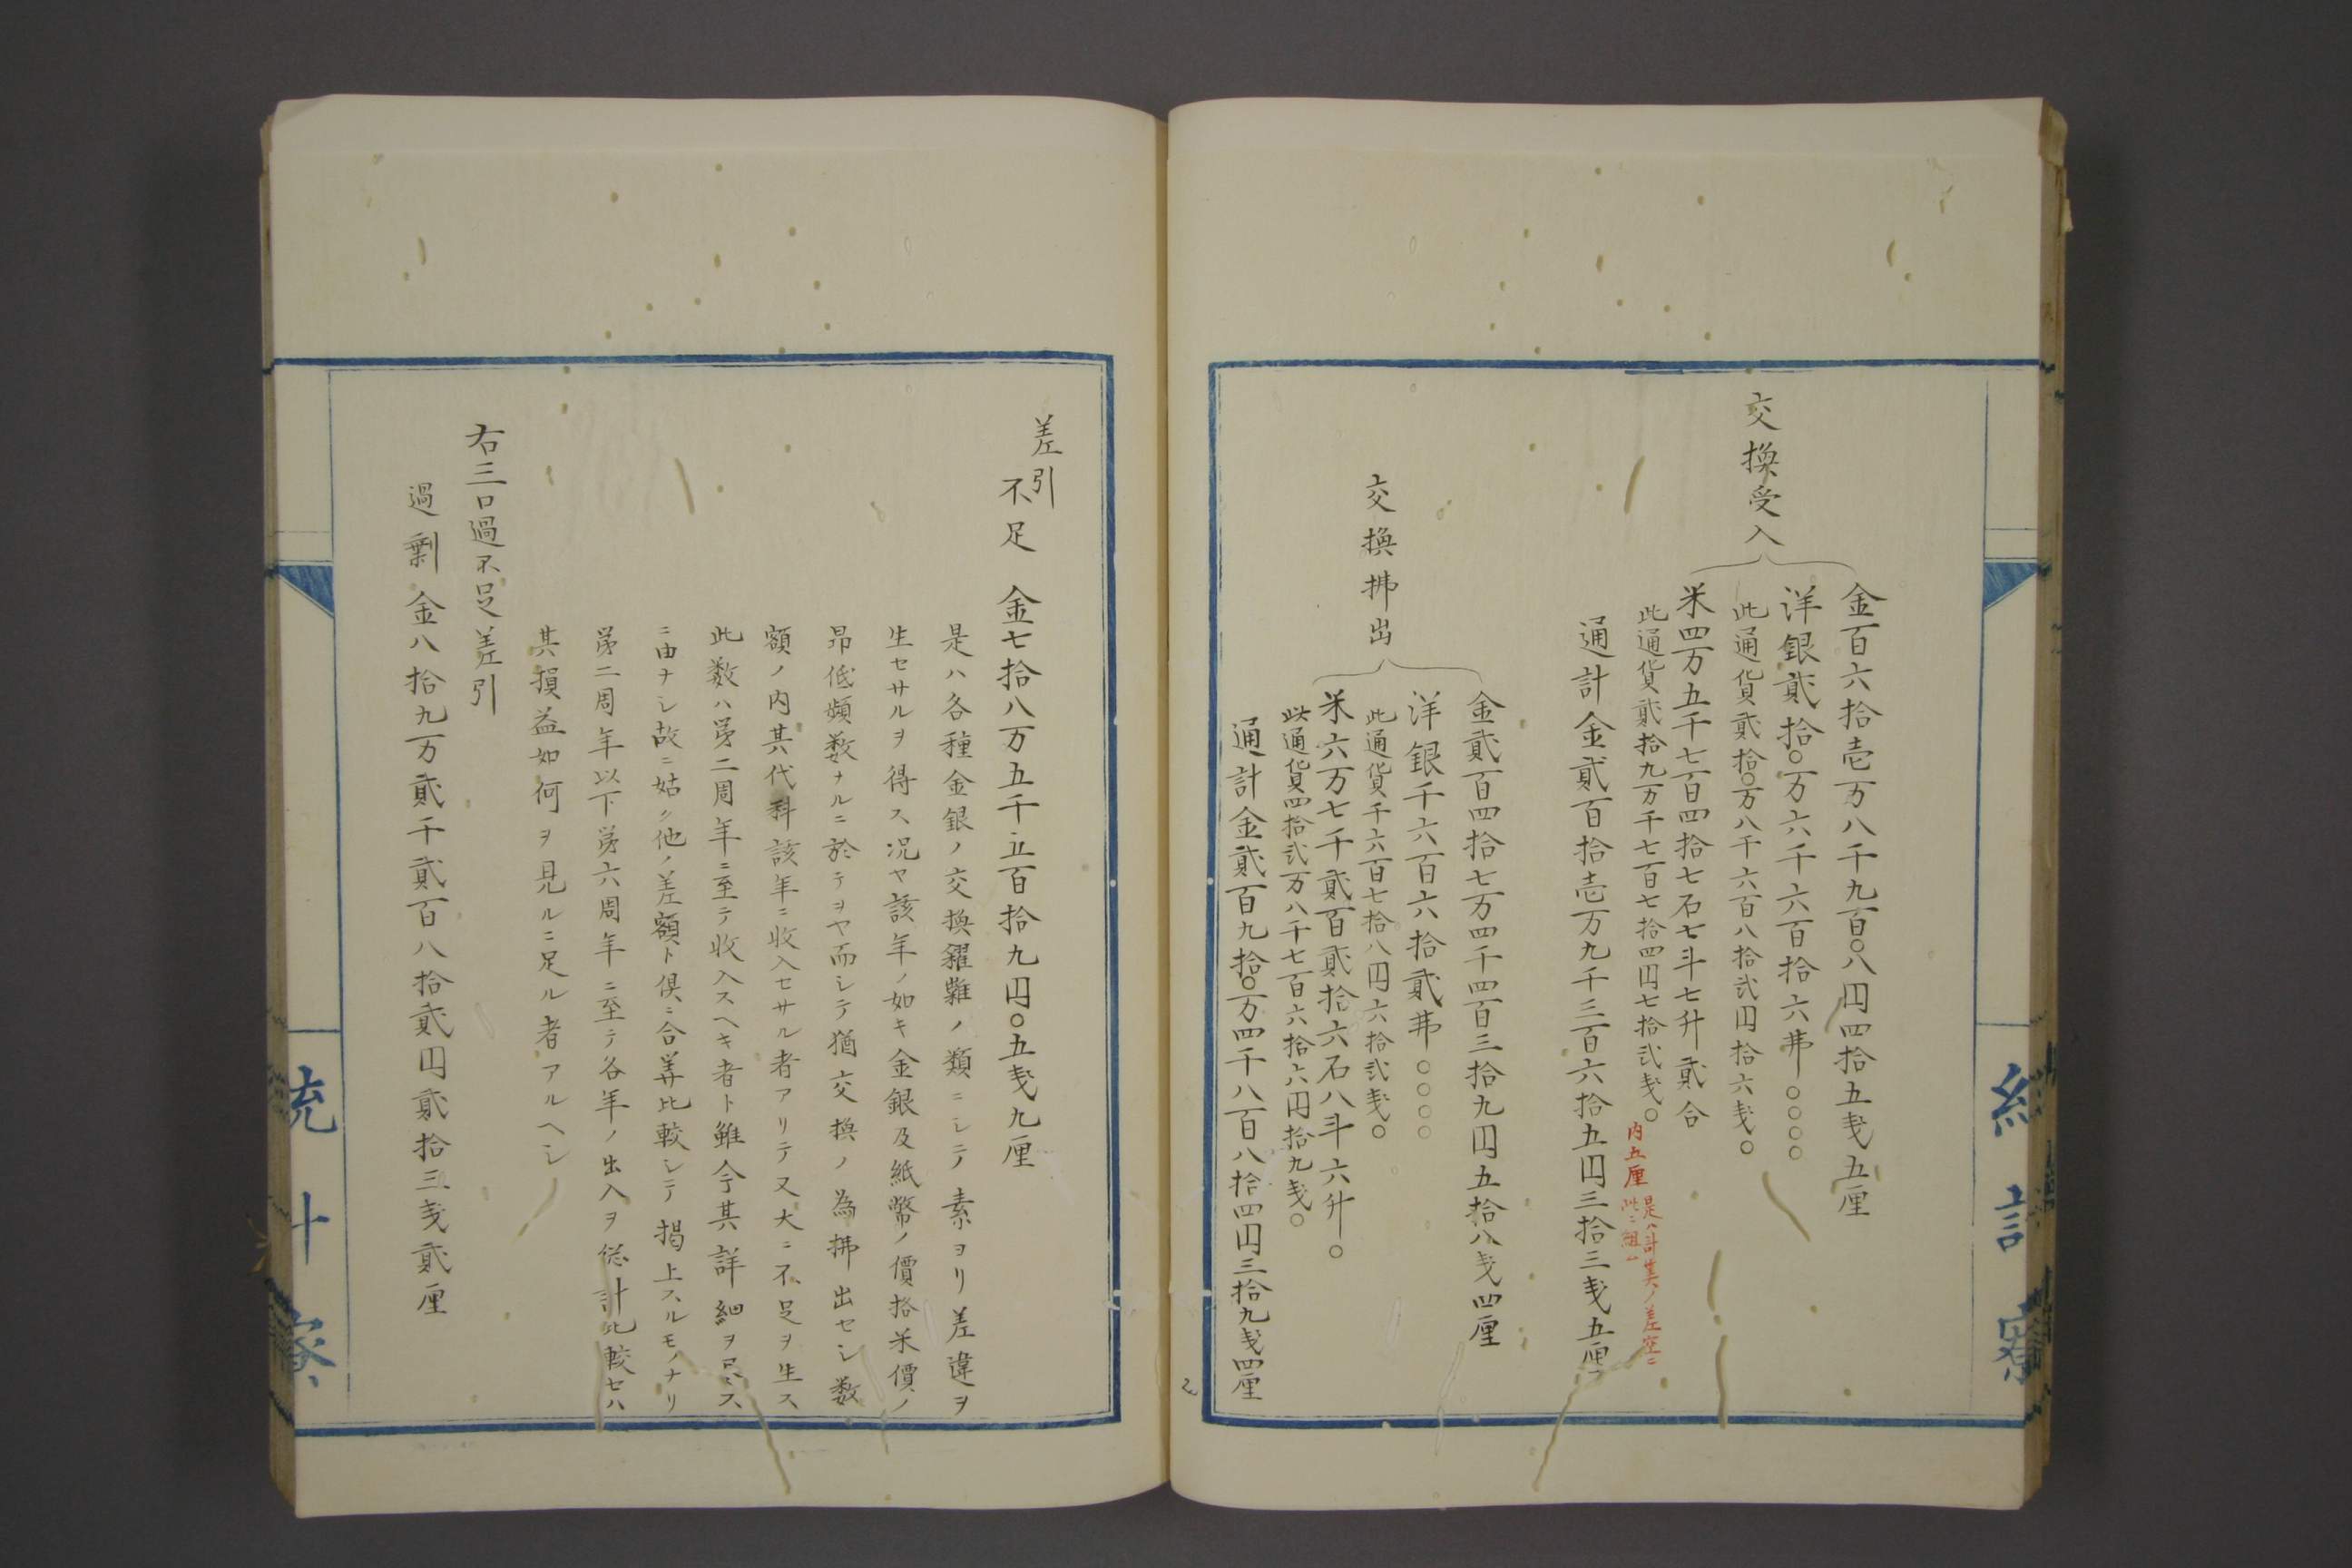 交換受入
金百六拾壱万八千九百〇八円四拾五戋五厘
洋銀貳拾〇万六千六百拾六弗〇〇〇〇
此通貨貳拾〇万八千六百八拾弐円拾六戋〇
米四万五千七百四拾七石七斗七升貳合
此通貨貳拾九万千七百七拾四円七拾弐戋〇
内五厘
是ハ計算ノ差空ニ
此ニ組ム
通計金貳百拾壱万九千三百六拾五円三拾三戋五厘
交換拂出
金貳百四拾七万四千四百三拾九円五拾八戋四厘
洋銀千六百六拾貳弗〇〇〇〇
此通貨千六百七拾八円六拾弐戋〇
米六万七千貳百貳拾六石八斗六升〇
此通貨四拾弐万八千七百六拾六円拾九戋〇
通計金貳百九拾〇万四千八百八拾四円三拾九戋四厘
差引
不足 金七拾八万五千五百拾九円〇五戋九厘
是ハ各種金銀ノ交換糴糶ノ類ニシテ素ヨリ差違ヲ
生セサルヲ得ス况ヤ該年ノ如キ金銀及紙幣ノ價格米價ノ
昂低頻数ナルニ於テヲヤ而シテ猶交換ノ為拂出セシ数
額ノ内其代料該年ニ收入セサル者アリテ又大ニ不足ヲ生ス
此数ハ第二周年ニ至テ收入スヘキ者ト雖今其詳細ヲ尽ス
ニ由ナシ故ニ姑ク他ノ差額ト倶ニ合算比較シテ揭上スルモノナリ
第二周年以下第六周年ニ至テ各年ノ出入ヲ総計比較セハ
其損益如何ヲ見ルニ足ル者アルヘシ
右三口過不足差引
過剰金八拾九万貳千貳百八拾貳円貳拾三戋貳厘
統計寮